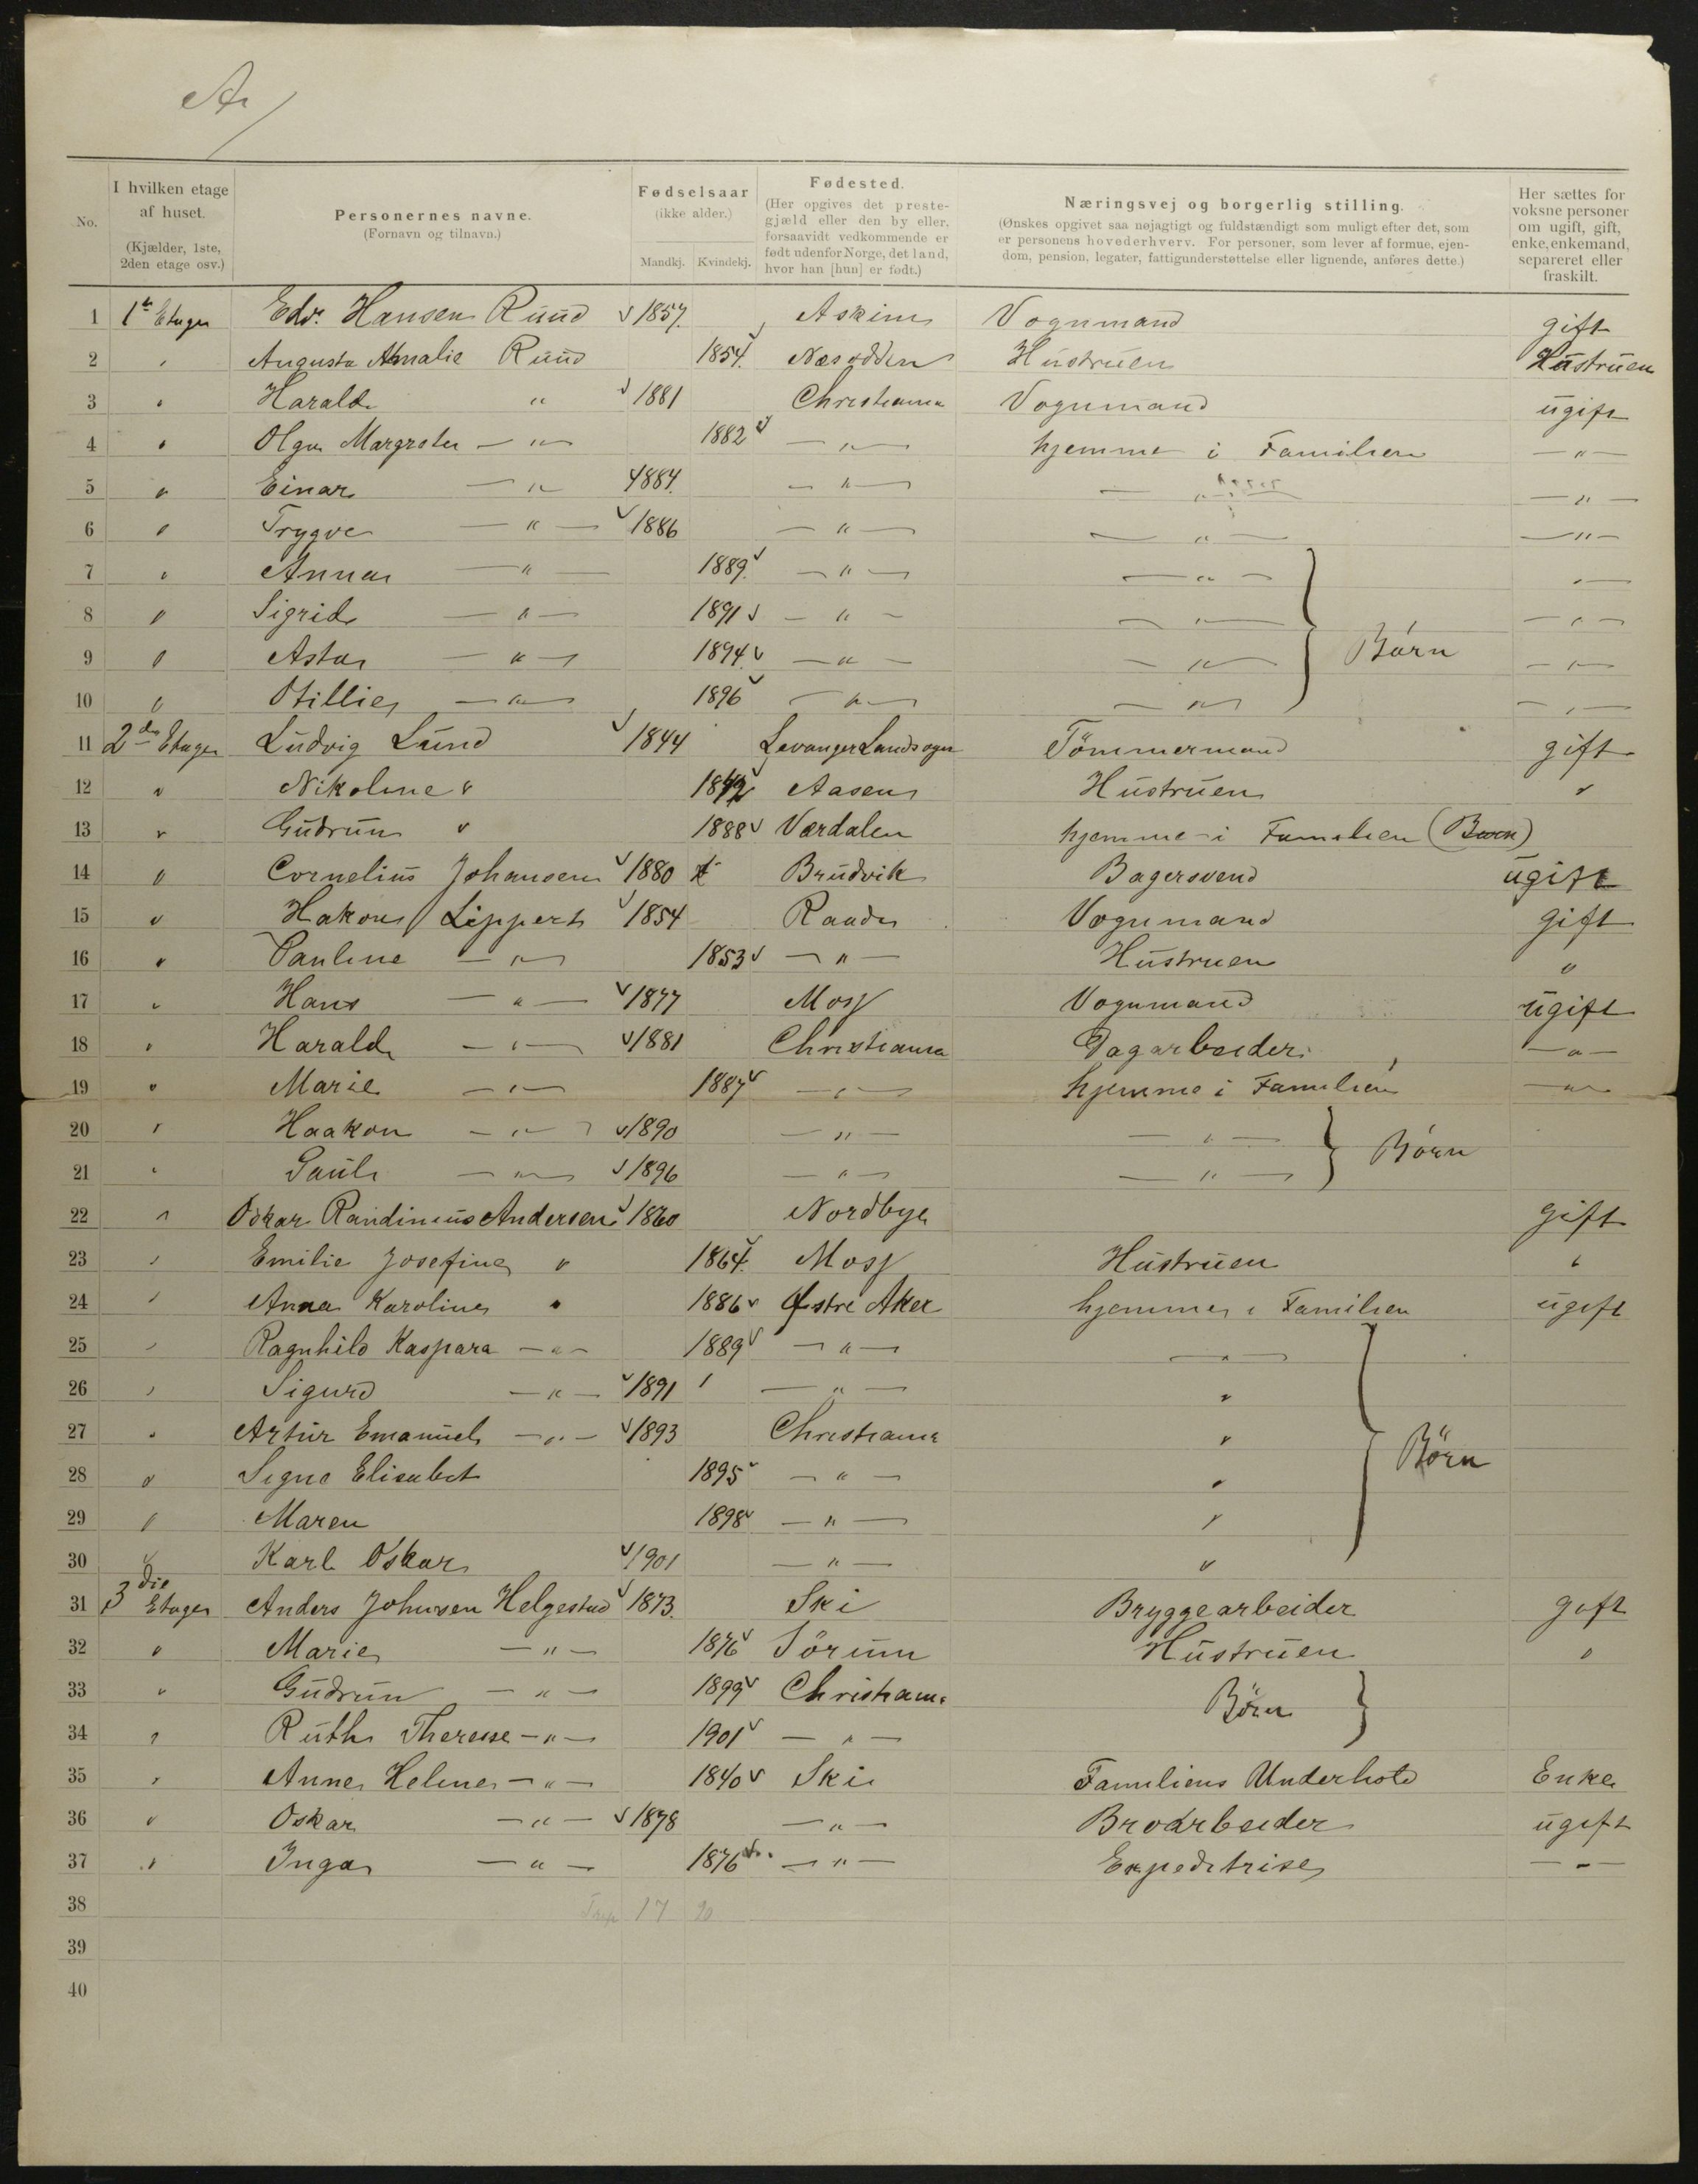 A
No. I hvilken etage af huset. (Kjælder, 1ste, 2den etage osv.) Personernes navne. (Fornavn og tilnavn.) Fødselsaar (ikke alder.) Mandkj. Kvindekj. Fødested. (Her opgives det prestegjæld eller den by eller, forsaavidt vedkommende er født udenfor Norge, det land, hvor han [hun] er født.) Næringsvej og borgerlig stilling. (Ønskes opgivet saa nøjagtigt og fuldstændigt som muligt efter det, som er personens hovederhverv. For personer, som lever af formue, ejendom, pension, legater, fattigunderstøttelse eller lignende, anføres dette.) Her sættes for voksne personer om ugift, gift, enke, enkemand, separeret eller fraskilt.
1 1te Etage Edv. Hansen Ruud 1857. Askim Vognmand gift
2 " Augusta Amalie Ruud 1854. Næsodden Hustruen Hustruen
3 " Harald " 1881 Christiania Vognmand ugift
4 " Olga Margrete — " 1882 — " — hjemme i Familien — " —
5 " Einar — " 1884. — " — — " — — " —
6 " Trygve — " — 1886 — " — — " — — " —
7 " Anna — " — 1889. — " — — " — " —
8 " Sigrid — " — 1891 — " — — " — — " —
9 " Asta — " — 1894. — " — — " — Börn — " —
10 " Otillie — " — 1896 — " — — " — — " —
11 2den Etage Ludvig Lund 1844 Levanger Landsogn Tömmermand gift
12 " Nikoline " Aasen Hustruen "
13 " Gudrun " 1888 Værdalen hjemme i Familien (Barn)
14 " Cornelius Johansen 1880 Brudvik Bagersvend ugift
15 " Hakon Lippert 1854 Raade Vognmand gift
16 " Pauline — " 1853 — " — Hustruen "
17 " Hans — " — 1877 Moss Vognmand ugift
18 " Harald — " — 1881 Christiania Dagarbeider — " —
19 " Marie — " — 1887 — " — hjemme i Familien — " —
20 " Haakon — " — 1890 — " — — " — Börn
21 " Paul — " — 1896 — " — — " —
22 " Oskar Randinius Andersen 1860 Nordbye gift
23 " Emilie Josefine " 1864. Moss Hustruen "
24 " Anna Karoline " 1886 Østre Aker hjemme i Familien ugift
25 " Ragnhild Kaspara — " — 1889 — " — — " —
26 " Sigurd — " — 1891 — " — "
27 " Artur Emanuel — " — 1893 Christiania " Börn
28 " Signe Elisabet 1895 — " — "
29 " Maren 1898 — " — "
30 " Karl Oskar 1901 — " — "
31 3die Etage Anders Johnsen Helgestad 1873. Ski Bryggearbeider gift
32 " Marie — " — 1876 Sörum Hustruen "
33 " Gudrun — " — 1899 Christiania Börn
34 " Ruth Therese — " — 1901 — " —
35 " Anne Helene — " — 1840 Ski Familiens Underhold Enke
36 " Oskar — " — 1878 — " — Brodrbeider ugift
37 " Inga — " — 1876 — " — Expeditrise — " —
38 17 20
39
40